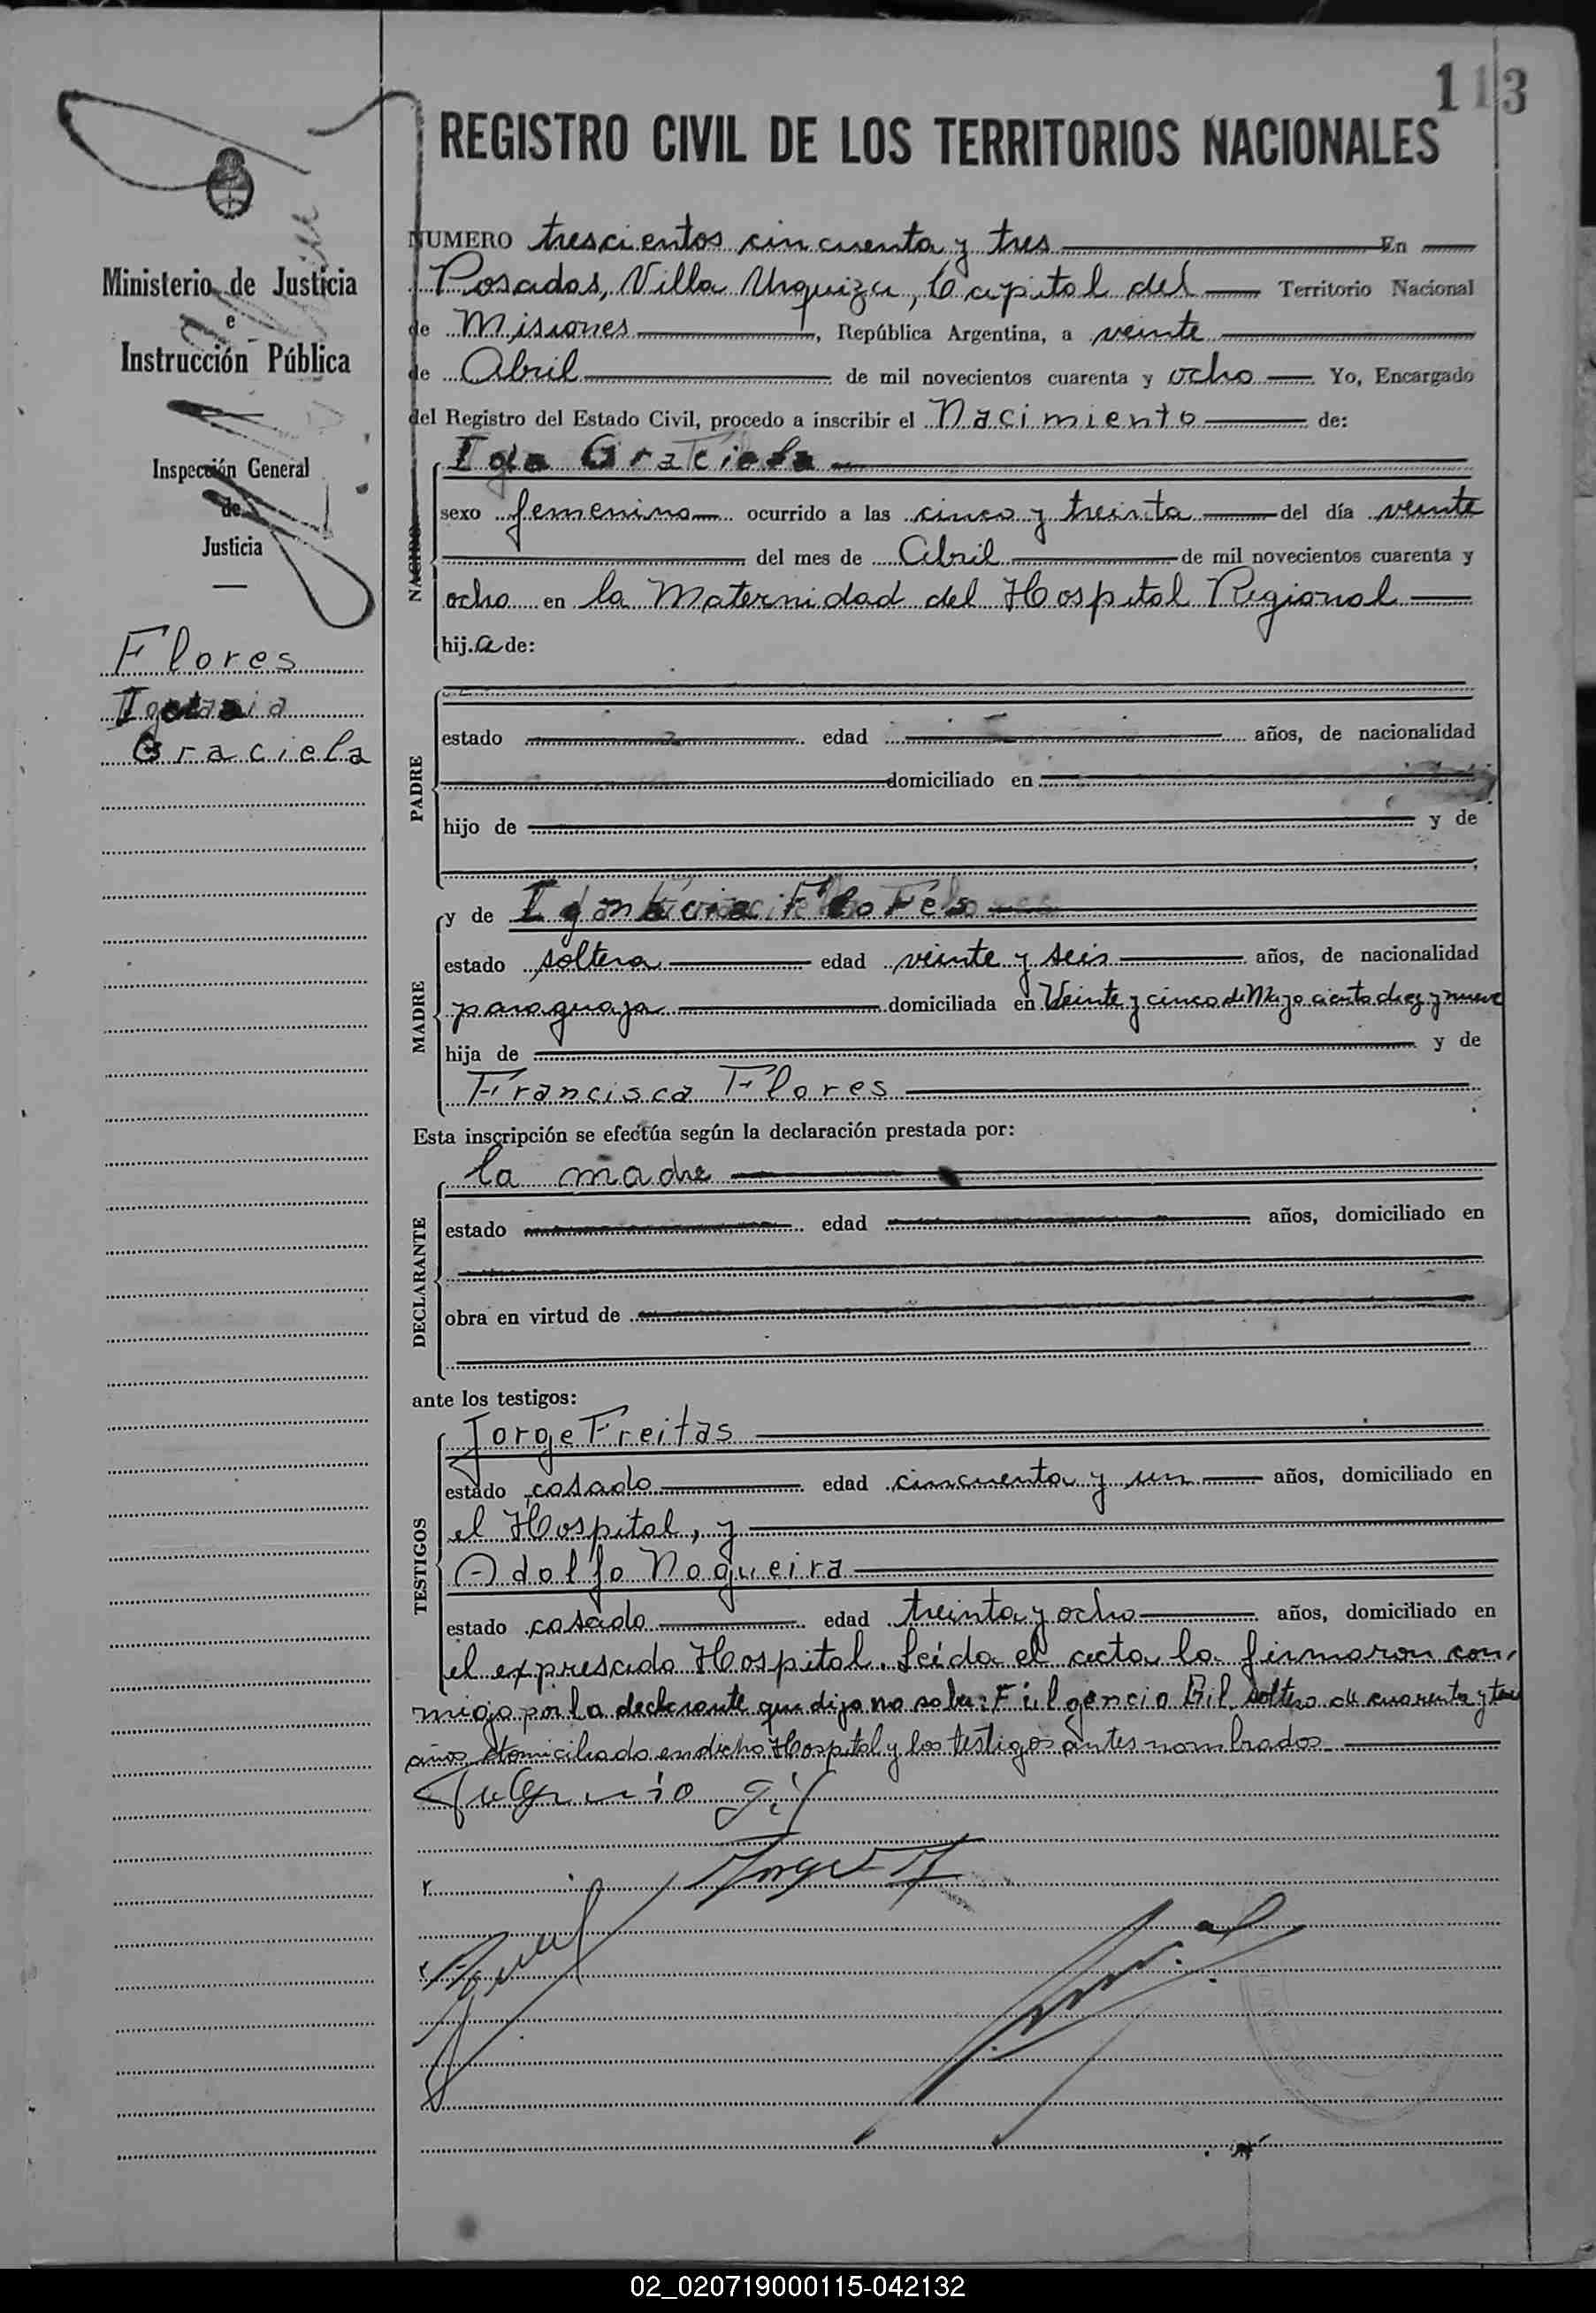 113
REGISTRO CIVIL DE LOS TERRITORIOS NACIONALES
Ministerio de Justicia
e
Instrucción Pública
Inspección General
de
Justicia
Flores
Graciela
NUMERO trescientos cincuenta y tres En
Posadas, Villa Urquiza, Capital del Territorio Nacional
de Misiones, República Argentina, a veinte
de Abril de mil novecientos cuarenta y ocho Yo, Encargado
del Registro del Estado Civil, procedo a inscribir el Nacimiento de:
NACIDO
Graciela
sexo femenino ocurrido a las cinco y treinta del día veinte
del mes de Abril de mil novecientos cuarenta y
ocho en la Maternidad del Hospital Regional
hija de:
PADRE
estado edad años, de nacionalidad
domiciliado en
hijo de y de
MADRE
y de Flores
estado soltera edad veinte y seis años, de nacionalidad
paraguaya domiciliada en Veinte y cinco de Mayo ciento diez y nueve
hija de y de
Francisca Flores
Esta inscripción se efectúa según la declaración prestada por:
DECLARANTE
la madre
estado edad años, domiciliado en
obra en virtud de
ante los testigos:
TESTIGOS
Jorge Freitas
estado casado edad cincuenta y un años, domiciliado en
el Hospital, y
Adolfo Nogueira
estado casado edad treinta y ocho años, domiciliado en
el expresado Hospital. Leída el acta la firmaron con-
migo por la declarante que dijo no saber: Fulgencio Gil soltero de cuarenta y tres
años domiciliado en dicho Hospital y los testigos antes nombrados
Fulgencio Gil
02_020719000115-042132